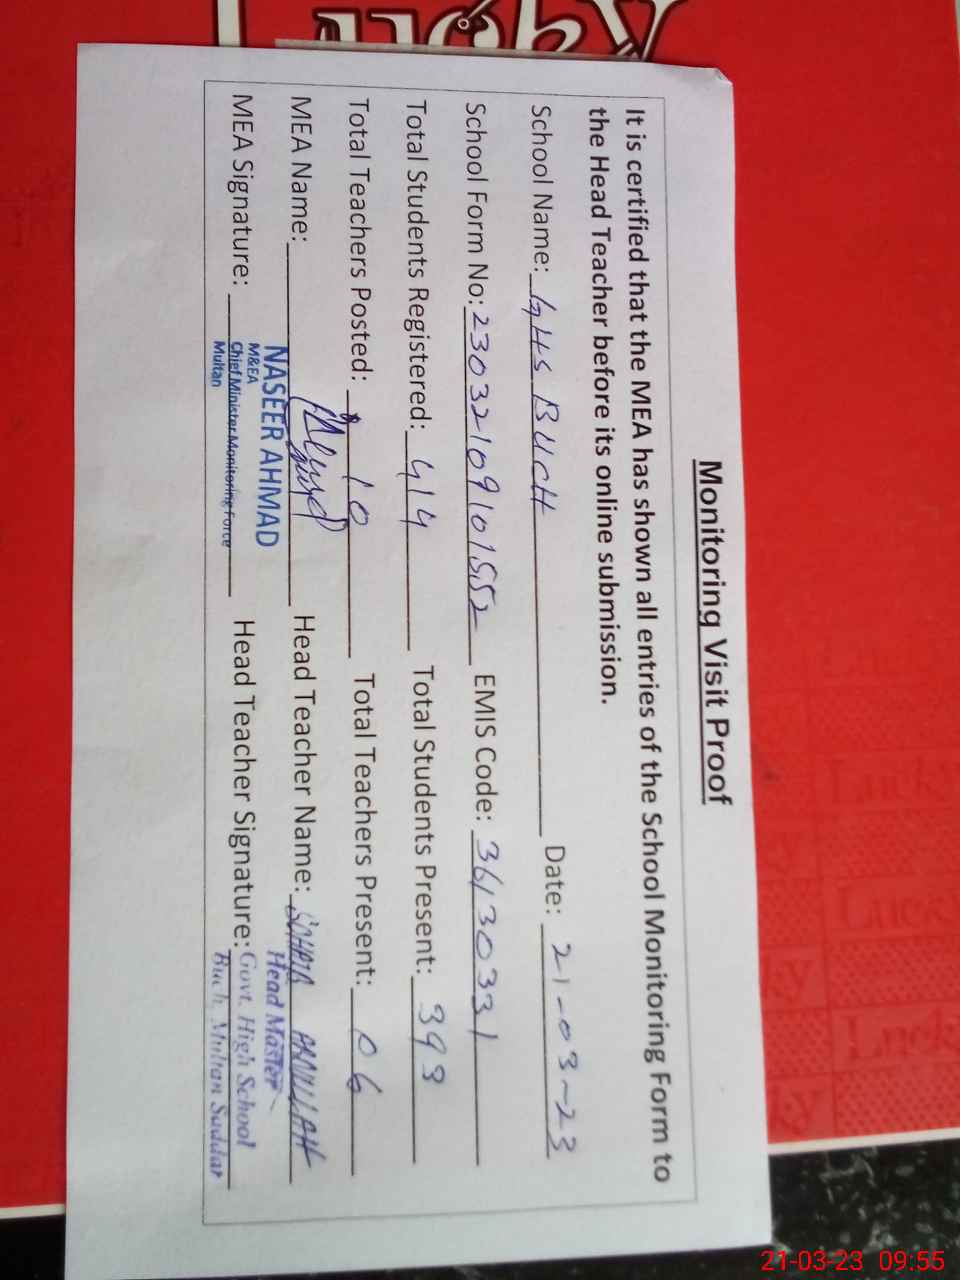 Lucky
Monitoring Visit Proof
It is certified that the MEA has shown all entries of the School Monitoring Form to
the Head Teacher before its online submission.
School Name: GHS BUCH Date: 21-03-23
School Form No: 230321091015852 EMIS Code: 36130331
Total Students Registered: 414 Total Students Present: 393
Total Teachers Posted: 10 Total Teachers Present: 06
MEA Name: Head Teacher Name: ABDULLAH
NASEER AHMAD
M&EA
Chief Minister Monitoring Force
Multan
MEA Signature: Head Teacher Signature:
Head Master
Govt. High School
Buch, Multan Saddar
Lucky
Lucky
Lucky
21-03-23 09:55